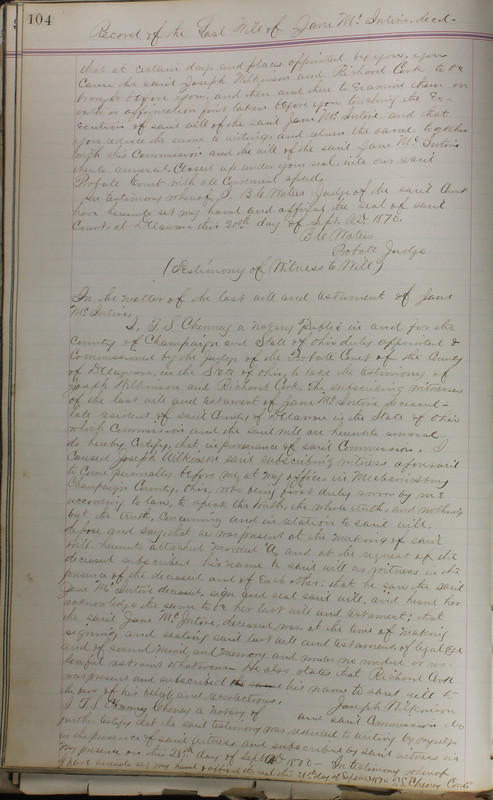 104
Record of the Last Will of Jane Mc Intire, decd-
that at certain days and places appointed by you, you
Cause the said Joseph Wilkinson and Richard Cook to be
brought before you, and then and there to Examine them on
oath or affirmation first taken before you touching the Ex-
ecution of said will of the said Jane Mc Intire, and that
you reduce the same to writing, and return the same together
with this Commission and the will of the said Jane Mc Intire
hereto annexed, Closed up under your seal, into our said
Probate Court with all Convenient speed,
In testimony whereof I B C Waters Judge of the said Court
have hereunto set my hand and affixed the seal of said
Court, at Delaware this 20th day of Sept. A.D. 1876.
B C Waters
Probate Judge
(Testimony of Witness to Will)
In the matter of the last will and testament of Jane
Mc Intire,
I, T, S Cheney a notary Public in and for the
County of Champaign and State of Ohio duly appointed &
Commissioned by the Judge of the Probate Court of the County
of Delaware, in the State of Ohio, to take the testimony of
Joseph Wilkinson and Richard Cook the subscribing witnesses
of the last will and testament of Jane Mc Intire deceased-
late resident of said County of Delaware in the State of Ohio
which Commission and the said will are hereunto annexed
do hereby Certify, that in pursuance of said Commission, I
Caused Joseph Wilkinson said subscribing witness aforesaid
to Come personally before me, at my office, in Mechanicsburg
Champaign County, Ohio, who being first duly sworn by me
according to law, to speak the truth, the whole truth, and nothing
but the truth, Concerning and in relation to said will,
depose and say, that he was present at the making of said
will hereunto attached marked "A, and at the request of the
deceased subscribed his name to said will as witness in the
presence of the deceased and of Each other; that he saw the said
Jane Mc Intire deceased, sign and seal said will, and heard her
acknowledge the same to be her last will and testament; that
the said Jane Mc Intire, deceased was at the time of making
signing and sealing said last will and testament, of legal age
and of sound mind, and memory and under no undue or un-
lawful restraint whatsoever. He also states that Richard Cook
was present and subscribed the same his name to said will to
the best of his belief and recollections. Joseph Wilkinson
I T S Cheney a notary of and said Commission do
further testify that the said testimony was reduced to writing by myself
in the presence of said witness, and subscribed by said witness in
my presence on the 28th day of Sept AD 1876- In testimony whereof
I have hereunto set my hand & affixed my seal this day of Sept AD 1876 T S Cheney